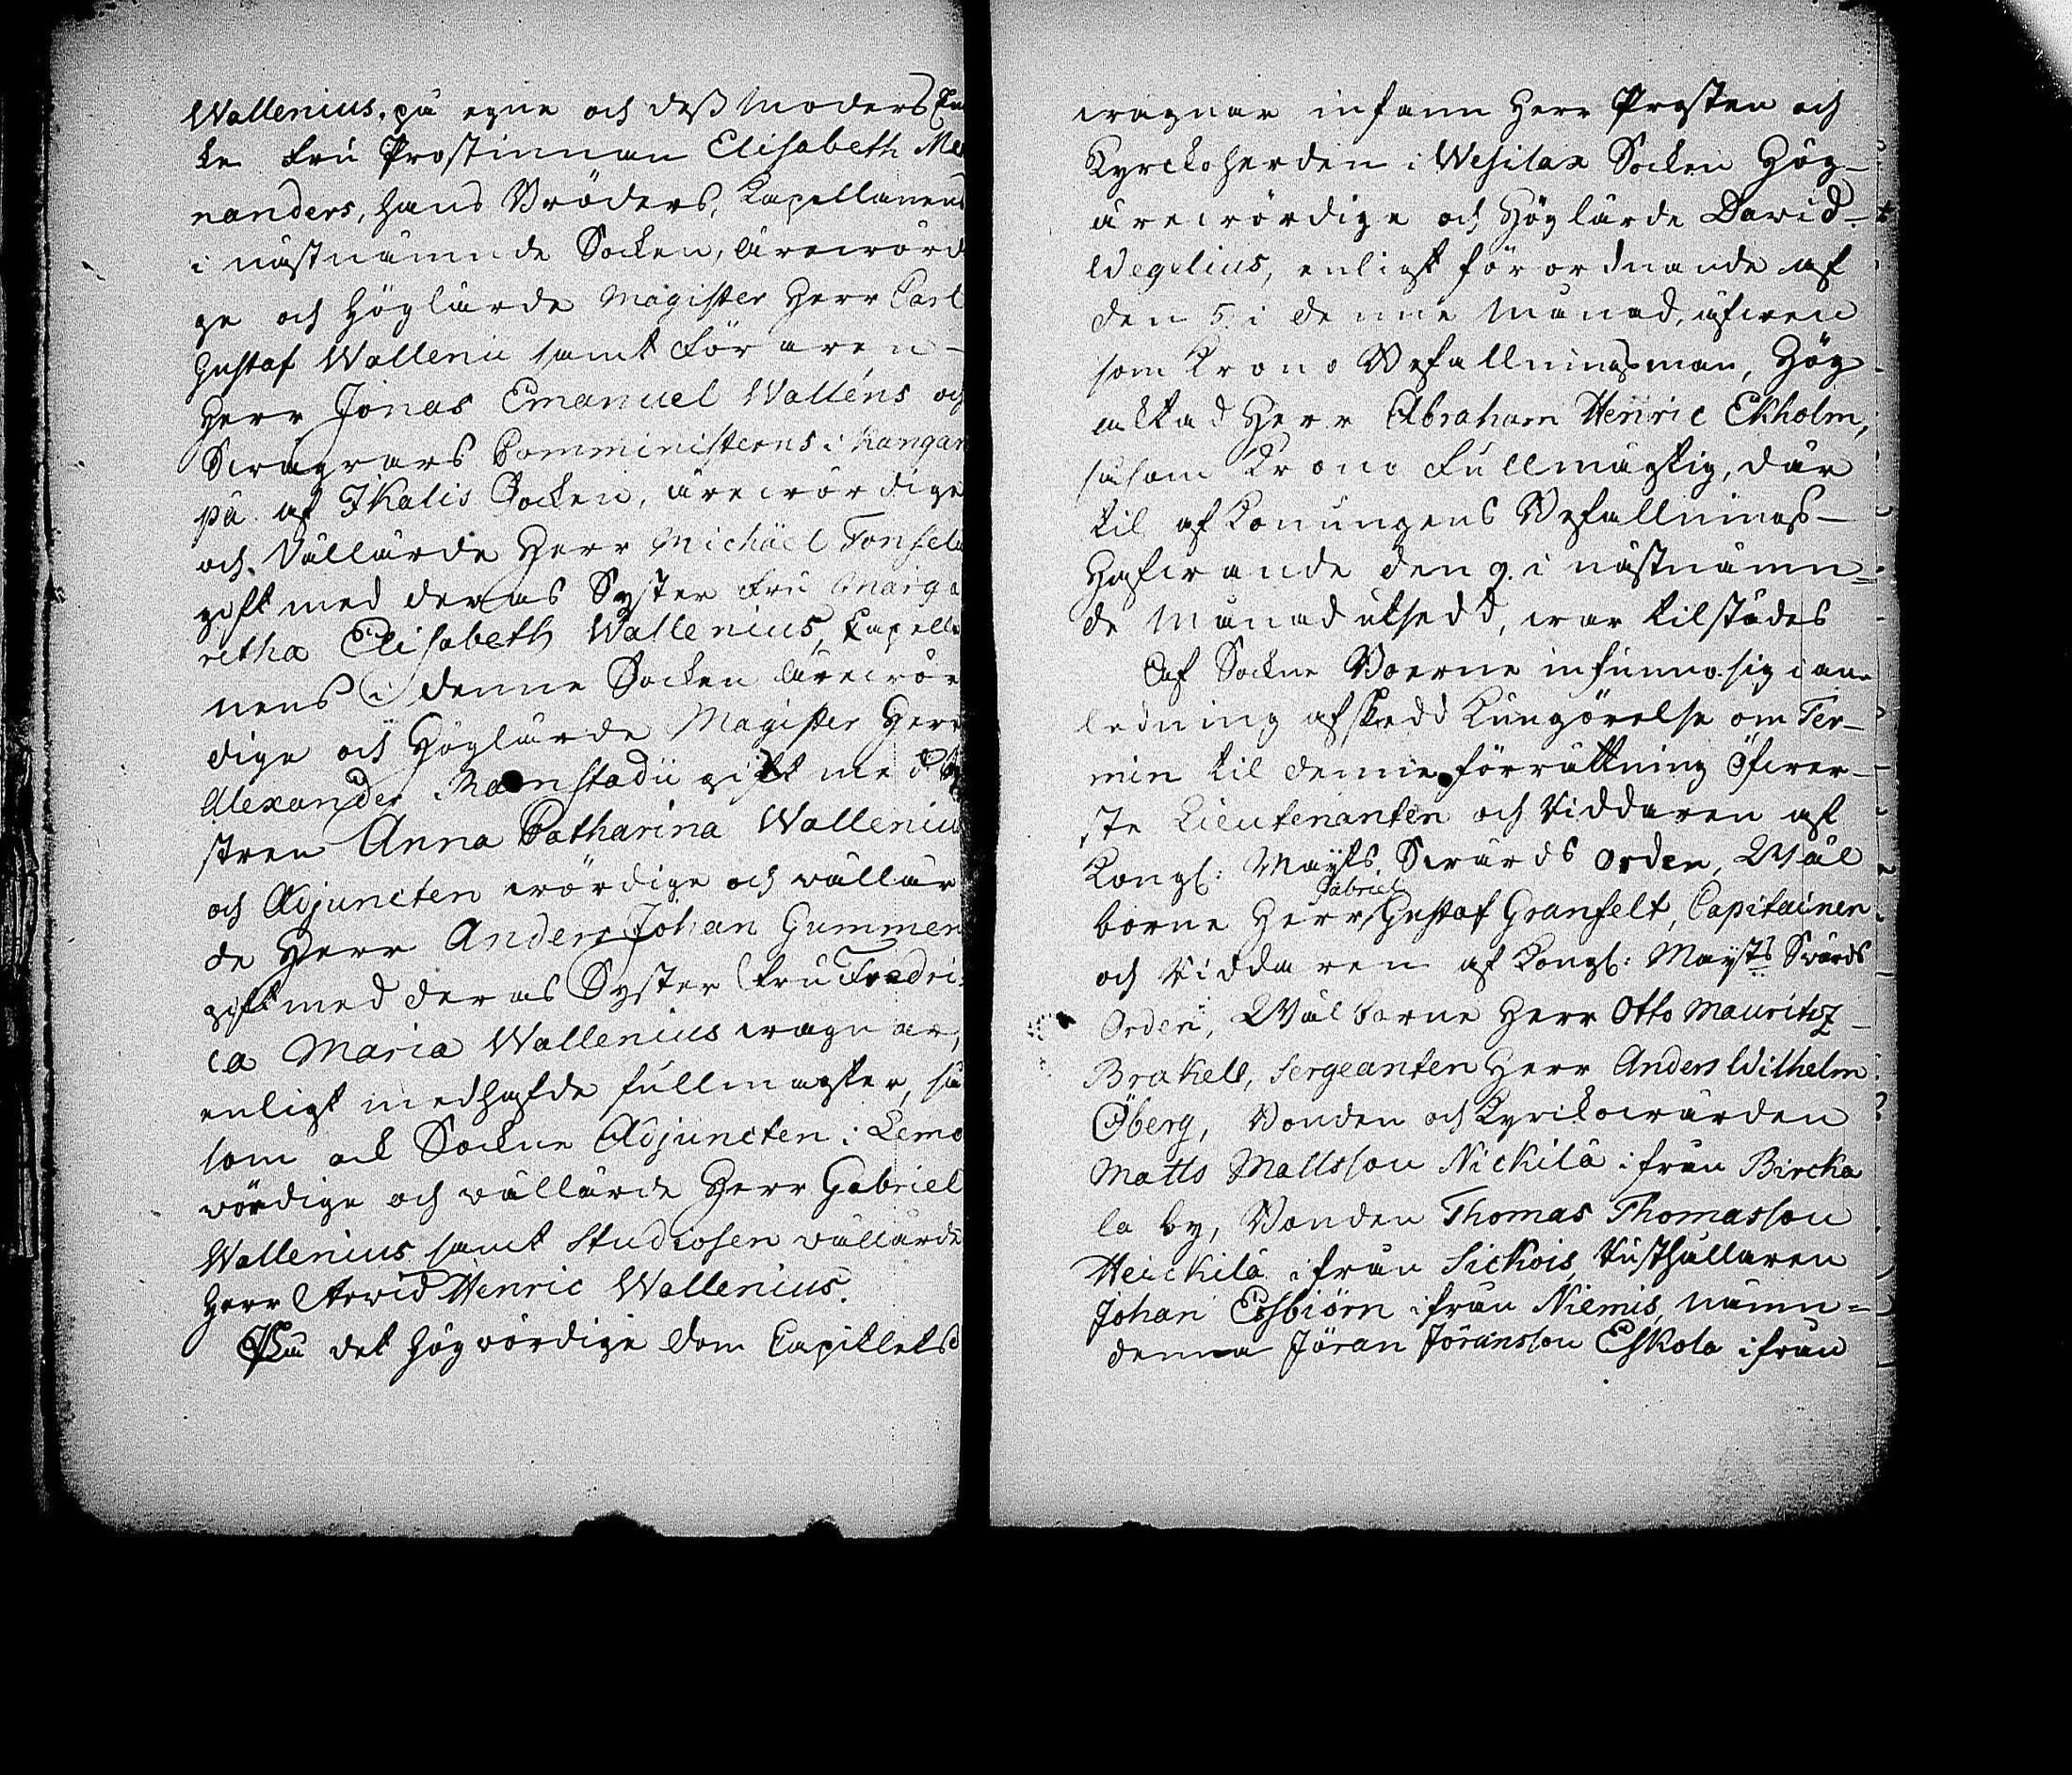 Wallenius, på egne och dess Moders En
ke Fru Prostinnan Elisabeth Me
nanders, hans Bröders, Kapellanens
i nästnämnde Socken, ärewörd
ge och Höglärde Magister Herr Carl
Gustaf Wallenii samt Föraren
Herr Jonas Emanuel Walléns och
Swågrars Comministerns i Kangan
på af Ikalis Socken, ärewördige
och Vällärde Herr Michäel Tonfeld
gift med deras Syster Fru Marga
retha Elisabeth Wallenius, Capella
nens i denne Socken ärewör
dige och Höglärde Magister Herr
Alexander Monstadii gift med Sy
stren Anna Catharina Wallenius
och Adjuncten wördige och wällär
de Herr Anders Johan Gummer
gift med deras Syster Fru Fredri-
ca Maria Wallenius wägnar,
enligt medhafde fullmagter, så
som ock Sockne Adjuncten i Lemo
wördige och wällärde Herr Gabriel
Wallenius samt Studiosen wällärde
Herr Arwid Henric Wallenius.
På det Högwördige Dom Capitlets
wägnar infann Herr Prosten och
Kyrckoherden i Wesilax Socken Hög-
ärewördige och Höglärde David
Wegelius, enligt förordnande af
den 5. i denne Månad, äfwen
som Krono Befallningsman, Hög
acktad Herr Abraham Henric Ekholm,
såsom Krono Fullmägtig, där
til af Konungens Befallnings-
Hafwande den 9. i nästnämn-
de Månad utsedd, war tilstädes
Af Sockne Boerne infunno sig i an-
ledning af skedd Kungörelse om Ter-
min til denne förrättning Öfwer-
ste Lieutenanten och Riddaren af
Kongl: Mayts Swärds Orden, Wäl
borne Herr Gabriel Gustaf Granfelt, Capitainen
och Riddaren af Kongl: Mayts Svärds
Orden, Wälborne Herr Otto Mauritz
Brakell, Sergeanten Herr Anders Wilhelm
Öberg, Bonden och Kyrckowärden
Matts Mattsson Nickilä ifrån Bircka
la by, Bonden Thomas Thomasson
Heickilä ifrån Sickois, Rusthållaren
Johan Esbiörn ifrån Niemis, Nämn-
deman Jöran Jöransson Eskola ifrån